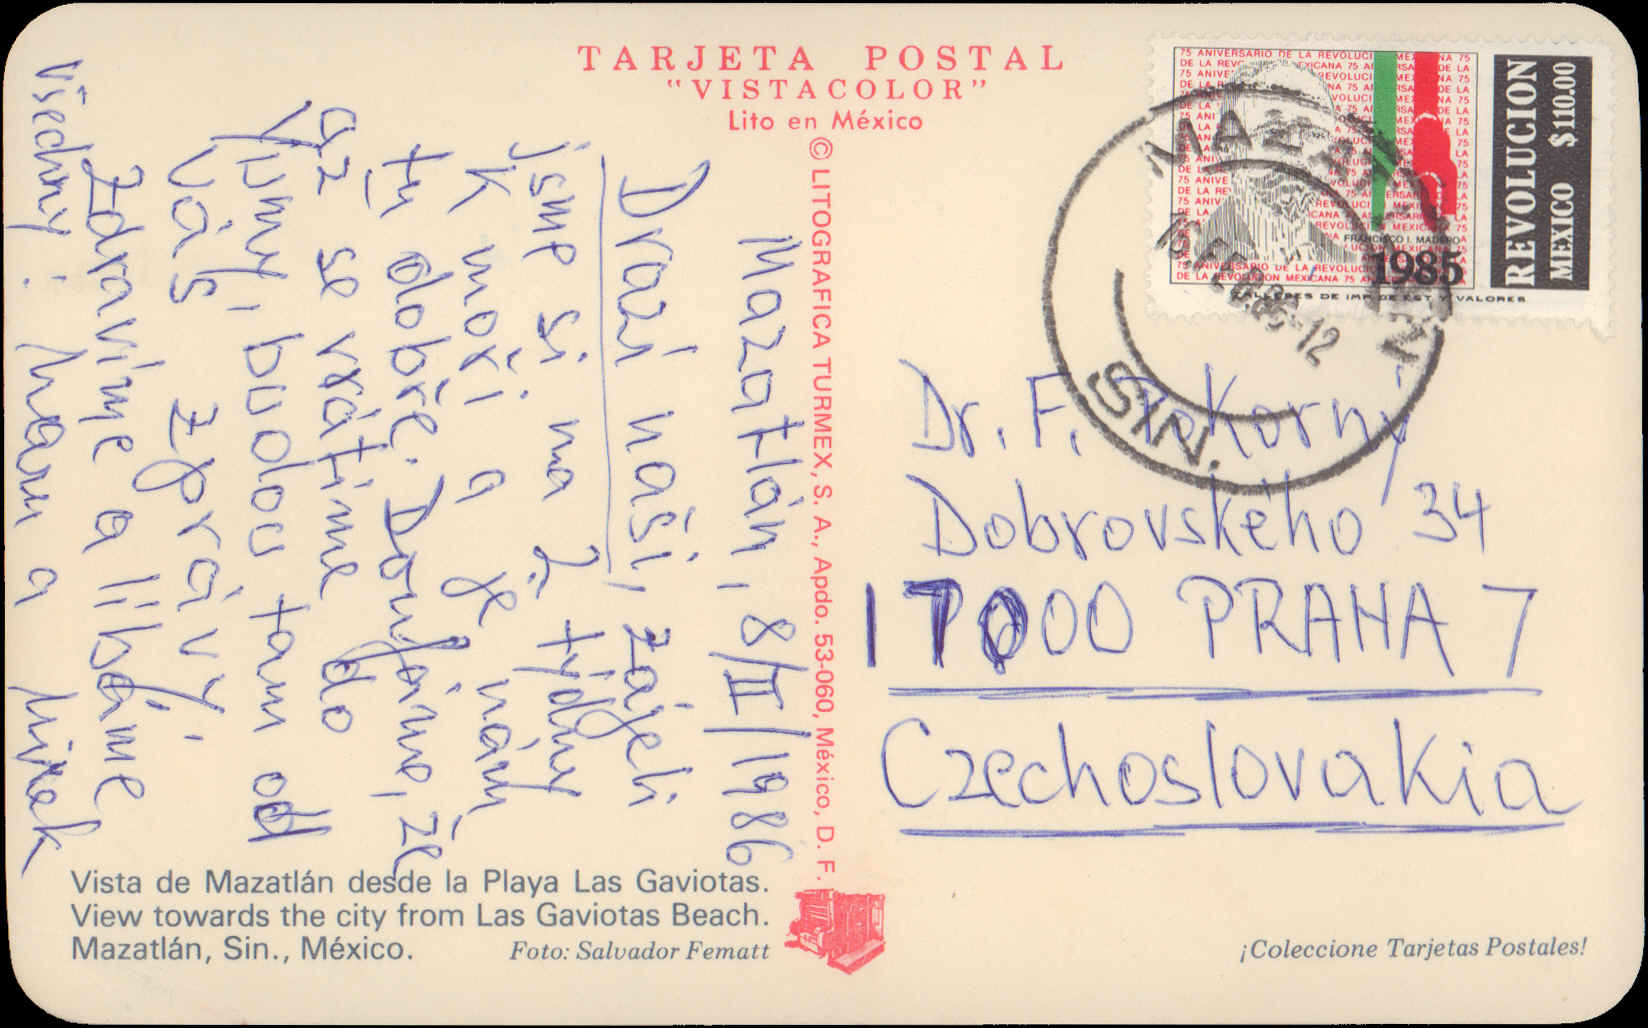 TARJETA POSTAL
"VISTACOLOR"
Lito en México
© LITOGRAFICA TURMEX, S. A., Apdo. 53-060, México, D. F.
Mazatlán, 8/II/1986
Drazí naši, zájeli
jsme si na 2. týdny
k moři a je nám
tu dobře. Doufáme, že
až se vrátíme do
Yumy, budou tam od
Vás zprávy.
Zdravíme a líbáme
všechny. Mam a Mirek
Vista de Mazatlán desde la Playa Las Gaviotas.
View towards the city from Las Gaviotas Beach.
Mazatlán, Sin., México.
Foto: Salvador Fematt
75 ANIVERSARIO DE LA REVOLUCION MEXICANA
FRANCISCO I. MADERO
1985
REVOLUCION
MEXICO $110.00
TALLERES DE IMP. DE EST. Y VALORES
MAZATLAN
SIN.
Dr. F. Pokorný
Dobrovského 34
17000 PRAHA 7
Czechoslovakia
¡Coleccione Tarjetas Postales!